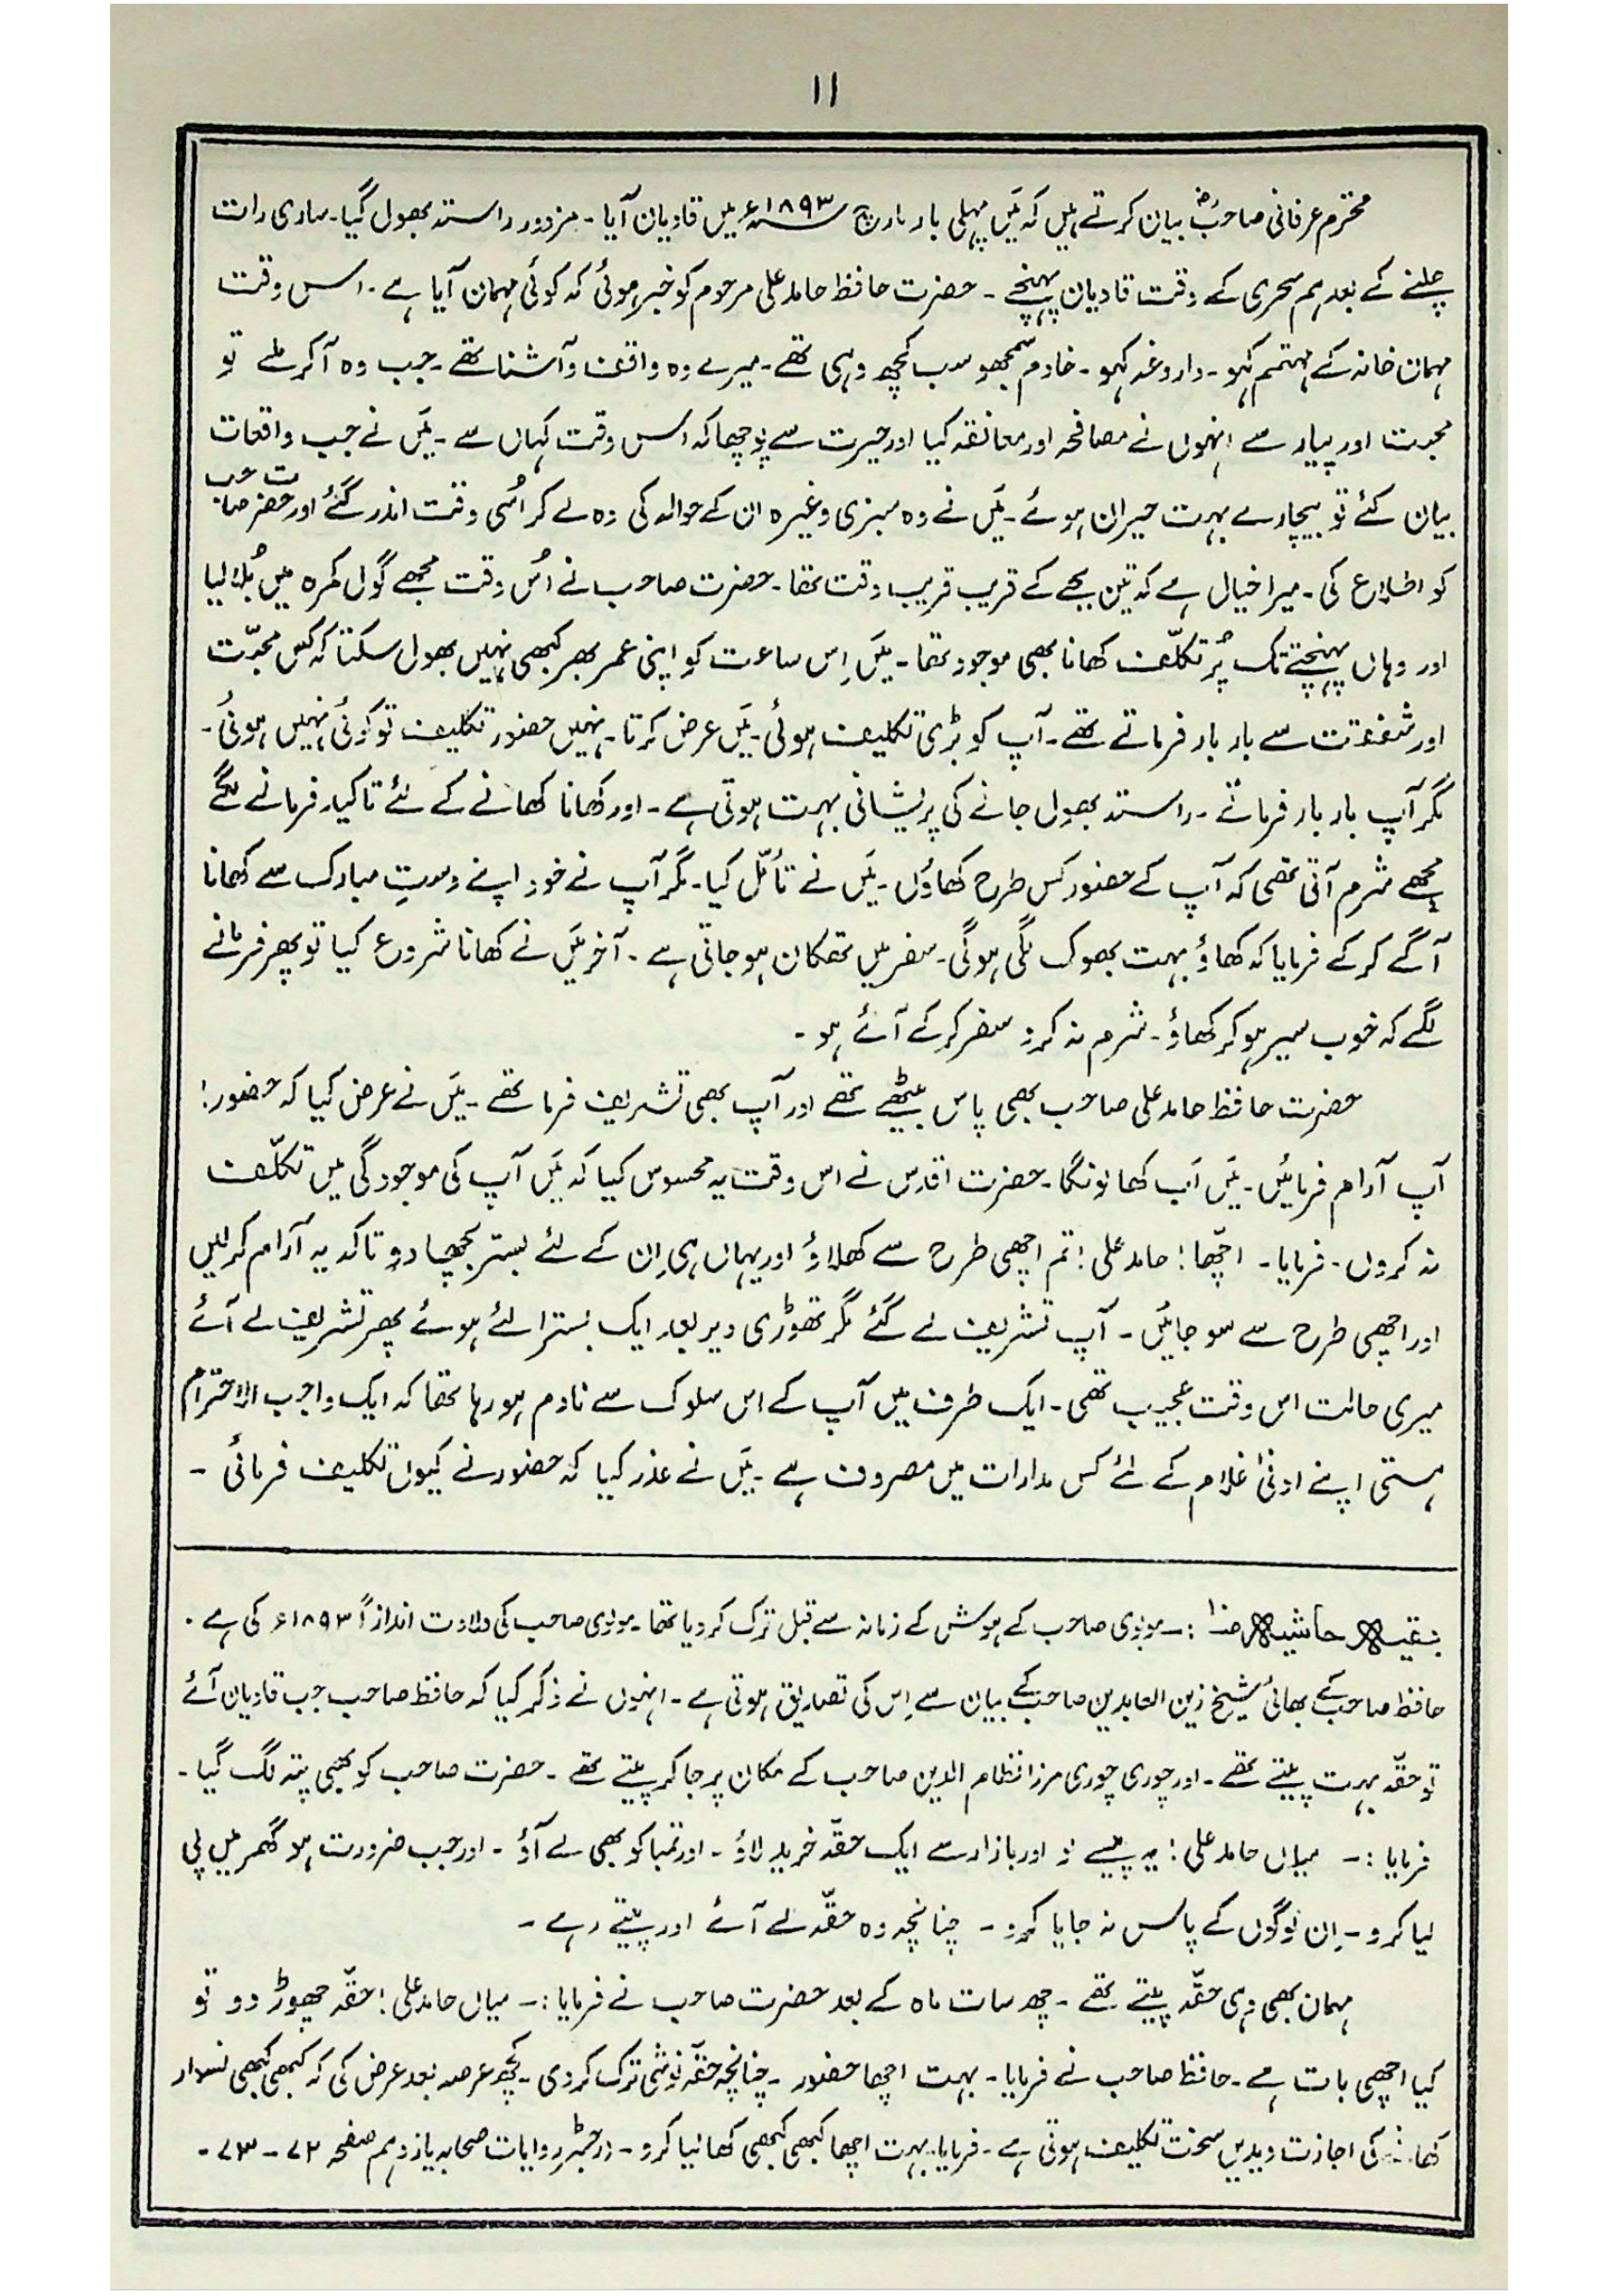 ۱۱
محترم عرفانی صاحبؓ بیان کرتے ہیں کہ میَں پہلی بار مارچ ۱۸۹۳ء میں قادیان آیا۔ مزدور راستہ بھول گیا۔ ساری رات
چلنے کے بعد ہم سحری کے وقت قادیان پہنچے۔ حضرت حافظ حامد علی مرحوم کو خبر ہوئی کہ کوئی مہمان آیا ہے۔ اس وقت
مہمان خانہ کے مہتمم کہو۔ داروغہ کہو۔ خادم سمجھو سب کچھ وہی تھے۔ میرے وہ واقف و آشنا تھے۔ جب وہ آکر ملے تو
محبت اور پیار سے انہوں نے مصافحہ اور معانقہ کیا اور حیرت سے پوچھا کہ اس وقت کہاں سے۔ میَں نے جب واقعات
بیان کئے تو بیچارے بہت حیران ہوئے۔ میَں نے وہ سبزی وغیرہ ان کے حوالہ کی وہ لے کر اُسی وقت اندر گئے اور حضرت صاحب
کو اطلاع کی۔ میرا خیال ہے کہ تین بجے کے قریب قریب وقت تھا۔ حضرت صاحب نے اُس وقت مجھے گول کمرہ میں بُلا لیا
اور وہاں پہنچتے تک پُر تکلّف کھانا بھی موجود تھا۔ میَں اِس ساعت کو اپنی عمر بھر کبھی نہیں بھول سکتا کہ کس محبّت
اور شفقت سے بار بار فرماتے تھے۔ آپ کو بڑی تکلیف ہوئی۔ میَں عرض کرتا۔ نہیں حضور تکلیف تو کوئی نہیں ہوئی۔
مگر آپ بار بار فرماتے۔ راستہ بھول جانے کی پریشانی بہت ہوتی ہے۔ اور کھانا کھانے کے لئے تاکید فرمانے لگے
مجھے شرم آتی تھی کہ آپ کے حضور کس طرح کھاؤں۔ میَں نے تأمّل کیا۔ مگر آپ نے خود اپنے دستِ مبارک سے کھانا
آگے کر کے فرمایا کہ کھاؤ بہت بھوک لگی ہوگی۔ سفر میں تھکان ہو جاتی ہے۔ آخر میَں نے کھانا شروع کیا تو پھر فرمانے
لگے کہ خوب سیر ہو کر کھاؤ۔ شرم نہ کرو سفر کر کے آئے ہو۔
حضرت حافظ حامد علی صاحب بھی پاس بیٹھے تھے اور آپ بھی تشریف فرما تھے۔ میَں نے عرض کیا کہ حضور!
آپ آرام فرمائیں۔ میَں اَب کھا لونگا۔ حضرت اقدس نے اس وقت یہ محسوس کیا کہ میَں آپ کی موجودگی میں تکلّف
نہ کروں۔ فرمایا۔ اچّھا! حامد علی! تم اچھی طرح سے کھلاؤ اور یہاں ہی اِن کے لئے بستر بچھا دو تاکہ یہ آرام کر لیں
اور اچھی طرح سے سو جائیں۔ آپ تشریف لے گئے مگر تھوڑی دیر بعد ایک بسترا لئے ہوئے پھر تشریف لے آئے
میری حالت اس وقت عجیب تھی۔ ایک طرف میں آپ کے اس سلوک سے نادم ہو رہا تھا کہ ایک واجب الاحترام
ہستی اپنے ادنیٰ غلام کے لئے کس مدارات میں مصروف ہے۔ میَں نے عذر کیا کہ حضور نے کیوں تکلیف فرمائی۔
بقیہ حاشیہ صنا :۔ مولوی صاحب کے ہوش کے زمانہ سے قبل ترک کر دیا تھا۔ مولوی صاحب کی ولادت اندازاً ۱۸۹۳ء کی ہے۔
حافظ صاحب کے بھائی شیخ زین العابدین صاحب کے بیان سے اِس کی تصدیق ہوتی ہے۔ انہوں نے ذکر کیا کہ حافظ صاحب جب قادیان آئے
تو حقّہ بہت پیتے تھے۔ اور چوری چوری مرزا نظام الدین صاحب کے مکان پر جا کر پیتے تھے۔ حضرت صاحب کو بھی پتہ لگ گیا۔
فرمایا :۔ میاں حامد علی! یہ پیسے لو اور بازار سے ایک حقّہ خرید لاؤ۔ اور تمباکو بھی لے آؤ۔ اور جب ضرورت ہو گھر میں پی
لیا کرو۔ اِن لوگوں کے پاس نہ جایا کرو۔ چنانچہ وہ حقّہ لے آئے اور پیتے رہے۔
مہمان بھی وہی حقّہ پیتے تھے۔ چھ سات ماہ کے بعد حضرت صاحب نے فرمایا :۔ میاں حامد علی! حقّہ چھوڑ دو تو
کیا اچھی بات ہے۔ حافظ صاحب نے فرمایا۔ بہت اچھا حضور۔ چنانچہ حقّہ نوشی ترک کر دی۔ کچھ عرصہ بعد عرض کی کہ کبھی کبھی نسوار
کی اجازت دیدیں سخت تکلیف ہوتی ہے۔ فرمایا۔ بہت اچھا کبھی کبھی کھا لیا کرو۔ (رجسٹر روایات صحابہ یازدہم صفحہ ۷۲۔۷۳۔